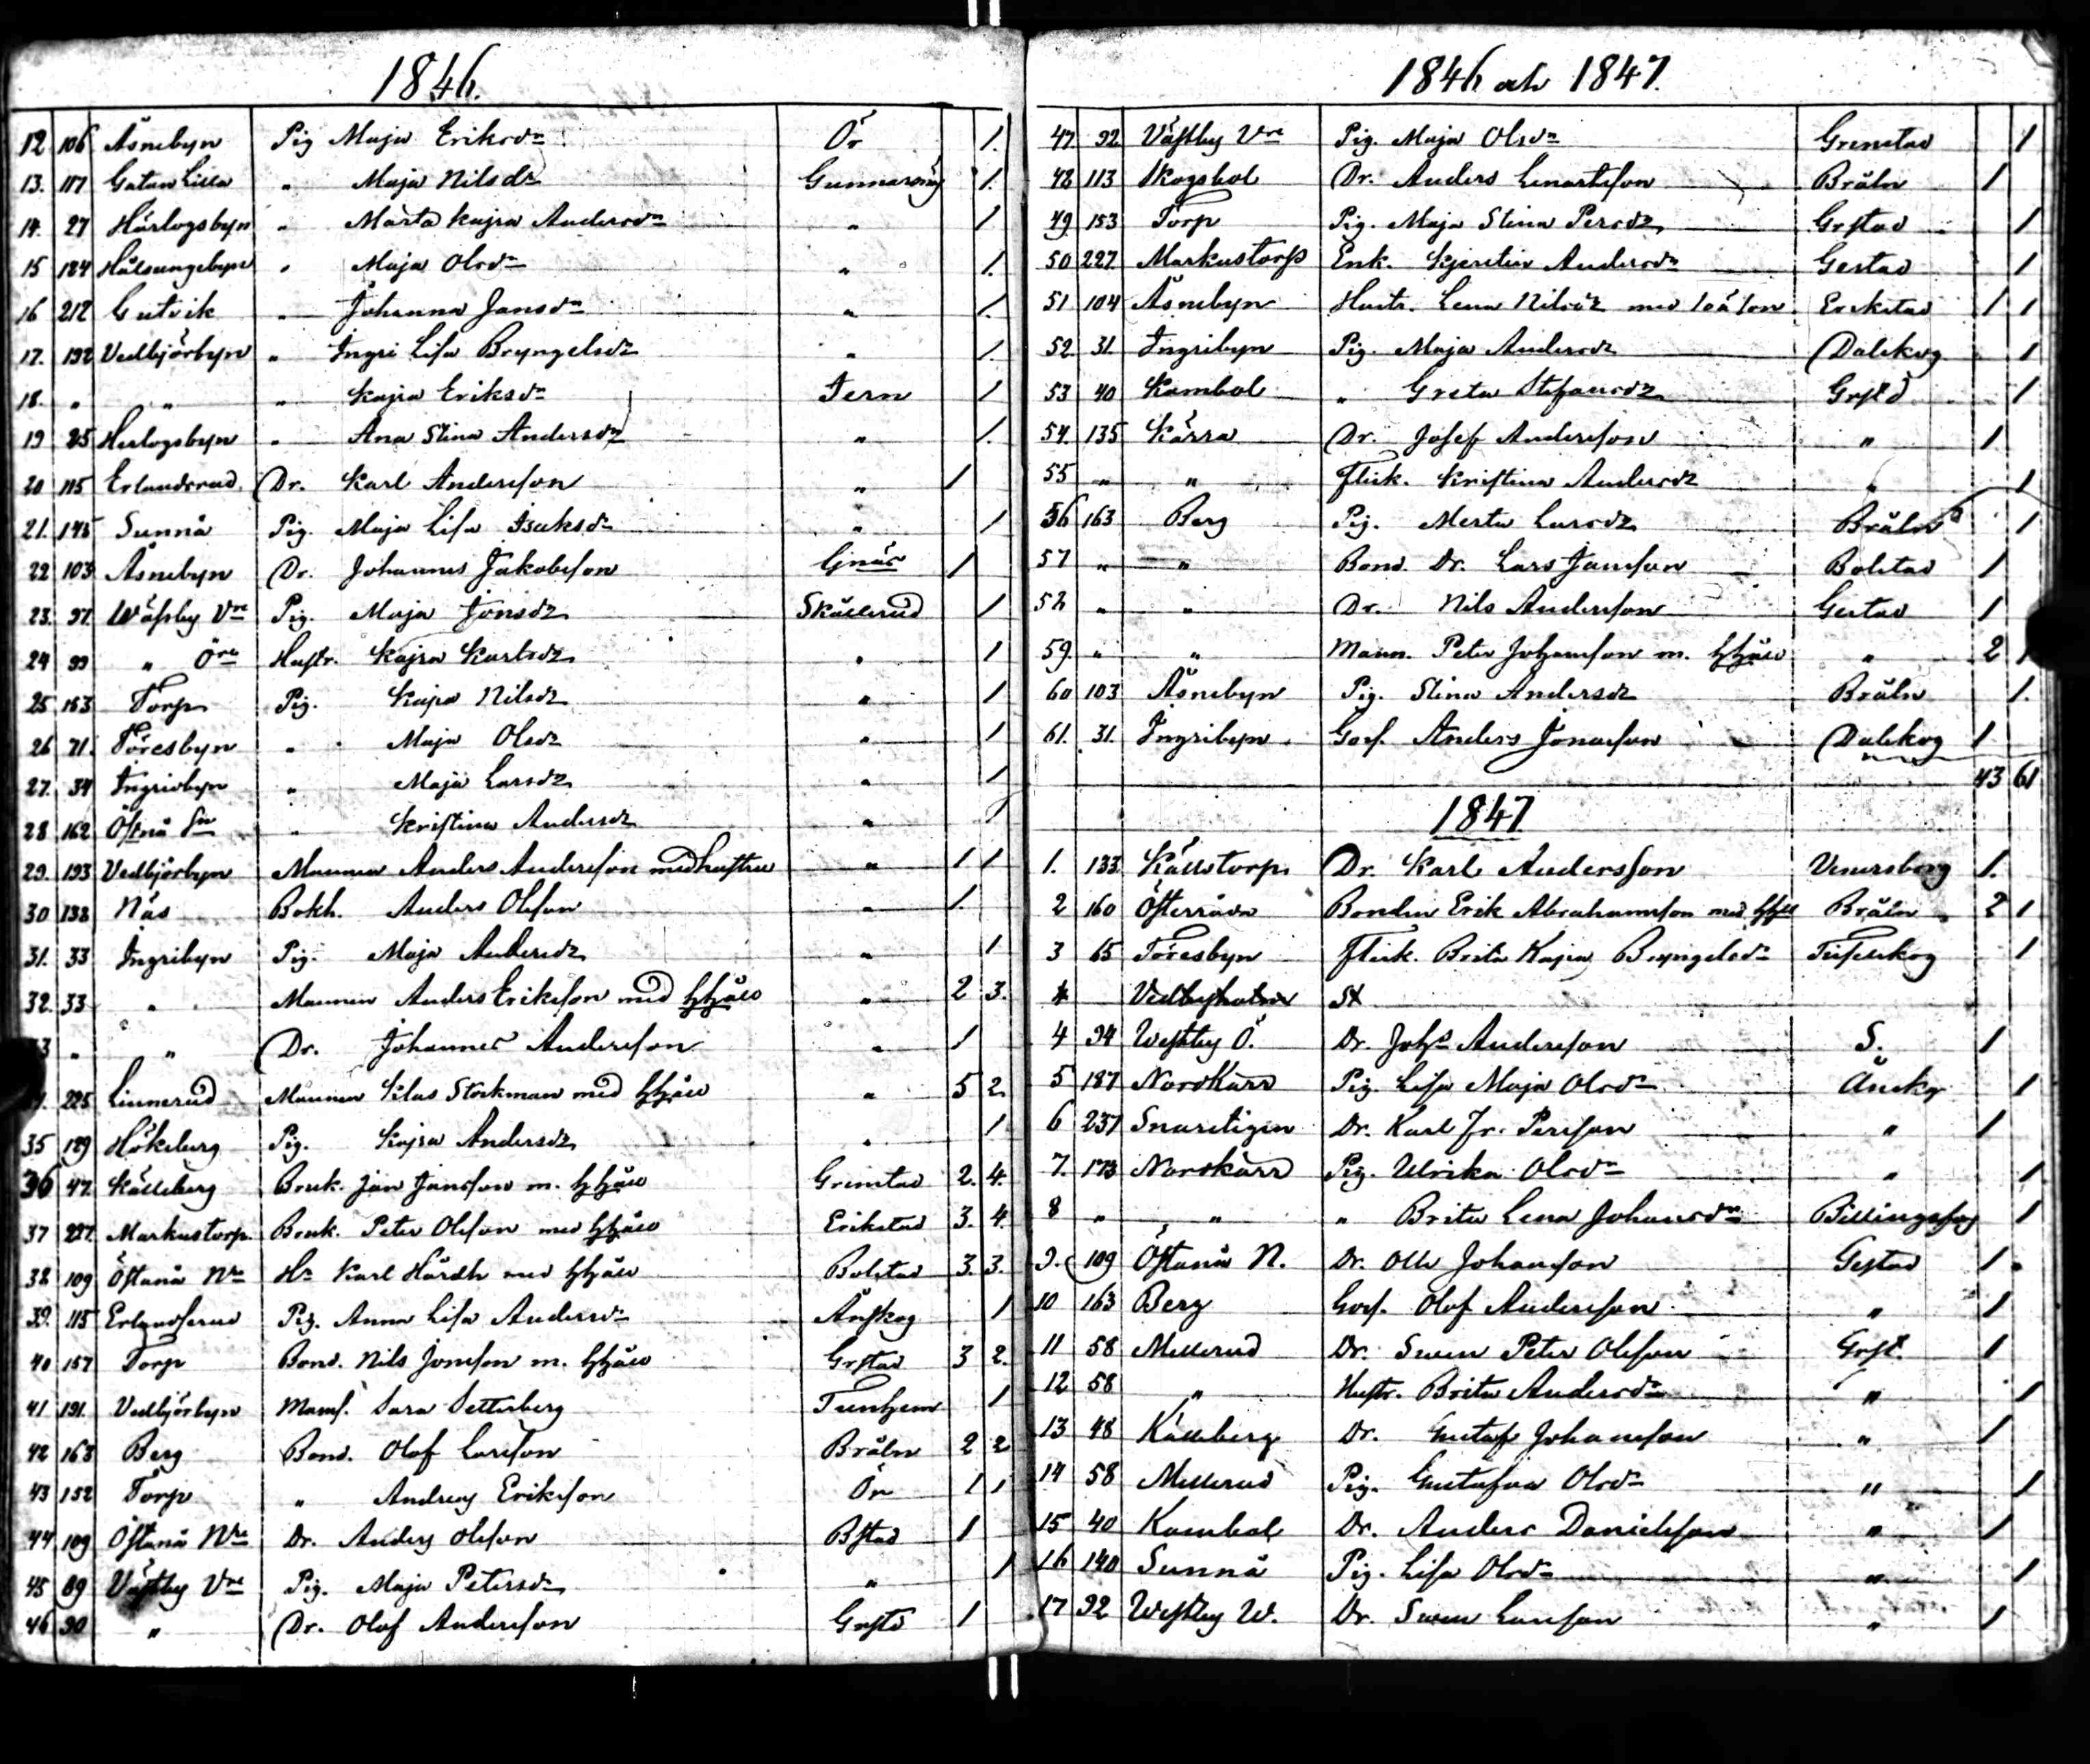 1846.
12 106 Åsnebyn Pig Maja Eriksdr Ör 1.
13. 117 Gatan Lilla " Maja Nilsdr Gunnarsnäs 1.
14. 27 Härlogsbyn " Märta Kajsa Andersdr " 1
15 184 Hälsungebyn " Maja Olsdr " 1.
16 212 Gutvik " Johanna Jansdr " 1.
17. 192 Vedbjörbyn " Ingri Lisa Bryngelsdr " 1.
18. " " " Kajsa Eriksdr Jern 1
19 25 Herlogsbyn " Ana Stina Andersdr " 1.
20 115 Erlandsrud Dr. Karl Anderson " 1
21. 145 Sunnå Pig. Maja Lisa Isaksdr " 1
22 103 Åsnebyn Dr. Johannes Jakobson 1
23. 97. Wäsby Vre Pig. Maja Jonsdr Skållerud 1
24 99 " Öre Hustr. Kajsa Karlsdr " 1
25 153 Torp Pig. Kajsa Nilsdr " 1
26 71. Töresbyn " Maja Olsdr " 1
27. 34 Ingribyn " Maja Larsdr " 1
28 162 Östnå " Kristina Andersdr " 1
29. 193 Vedbjörbyn Mannen Anders Anderson med hustru " 1 1
30 138 Näs Bokh. Anders Olson " 1.
31. 33 Ingribyn Pig. Maja Andersdr " 1
32. 33 " Mannen Anders Erikson med hhåll " 2 3.
" " Dr. Johannes Anderson " 1
225 Linnerud Mannen Klas Stockman med hhåll " 5 2.
35 129 Hökeberg Pig. Kajsa Andersdr " 1
36 47. Källeberg Bruk. Jan Janson m. hhåll Grinstad 2. 4.
37 227. Markustorp. Bruk. Peter Olson med hhåll Erikstad 3. 4.
38 109 Östanå Nre Hr Karl Hårdh med hhåll Bolstad 3. 3.
39. 115 Erlandserud Pig. Anna Lisa Andersdr Ånskog 1
40 157 Torp Bond. Nils Jonson m. hhåll Grstad 3 2.
41 191. Vedbjörbyn Mams. Sara Setterberg Tunhem 1
42 163 Berg Bond. Olof Larson Bråln 2 2
43 152 Torp " Andreas Erikson Ör 1 1
44 109 Östanå Nre Dr. Anders Olson Bstad 1
45 89 Västby Vre Pig. Maja Petersdr " 1
46 90 " Dr. Olof Anderson Grstd 1
1846 och 1847.
47 92 Västby Vre Pig. Maja Olsdr Grinstad 1
48 113 Skogsbol Dr. Anders Lenartson Bråln 1
49 153 Torp Pig. Maja Stina Persdr Grstad 1
50 227 Markustorp Enk. Kjerstin Andersdr Gestad 1
51 104 Åsnebyn Hustr. Lena Nilsdr med Erikstad 1 1
52 31. Ingribyn Pig. Maja Andersdr Dalskog 1
53 40 Kambol " Greta Stefansdr Grstd 1
54. 135 Kärra Dr. Josef Anderson " 1
55 " " Flick. Kristina Andersdr " 1
56 163 Berg Pig. Merta Larsdr Bråln 1
57 " " Bond. Dr. Lars Janson Bolstad 1
58 " " Dr. Nils Anderson Gestad 1
59. " " Mann. Peter Johanson m. hhåll " 2 1
60 103 Åsnebyn Pig. Stina Andersdr Bråln 1.
61. 31. Ingribyn Goss. Anders Jonasson Dalskog 1
43 61
1847
1. 133 Källstorp Dr. Karl Andersson Venersborg 1.
2 160 Österråda Bonden Erik Abrahamson med hhll Bråln 2 1
3 65 Töresbyn Flick. Brita Kajsa Bryngelsdr Tisselskog 1
4 Vedbyholm St
4 94 Westby Ö. Dr. Johs Anderson S. 1
5 187 Nordkärr Pig. Lisa Maja Olsdr Ånskg 1
6 237 Snarstigen Dr. Karl Fr. Person " 1
7. 173 Nordkärr Pig. Ulrika Olsdr " 1
8 " " " Brita Lena Johansdr Billingsfors 1
9. 109 Östanå N. Dr. Olle Johanson Gestad 1
10 163 Berg Goss. Olof Anderson " 1
11 58 Mellerud Dr. Swen Peter Olson Grst. 1
12 58 " Hustr. Brita Andersdr " 1
13 48 Källeberg Dr. Gustaf Johanson " 1
14 58 Mellerud Pig. Gustafva Olsdr " 1
15 40 Kambol Dr. Anders Danielson " 1
16 140 Sunnå Pig. Lisa Olsdr " 1
17 92 Westby W. Dr. Swen Larson " 1